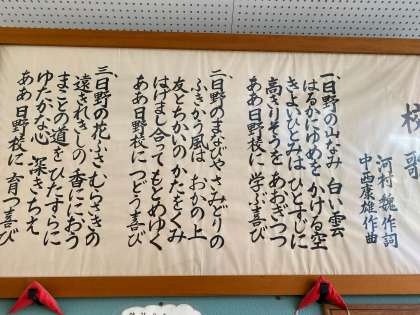 校歌
河村巍作詞
中西康雄作曲
一、日野の山なみ 白い雲
はるかにゆめを かける空
きよいひとみは ひとすじに
高きりそうを あおぎつつ
ああ日野校に 学ぶ喜び
二、日野のまなびや さみどりの
ふきかう風は おかの上
友とちかいの かたをくみ
はげまし合って もとめゆく
ああ日野校に つどう喜び
三、日野の花ふさ むらさきの
遠きれきしの 香ににおう
まことの道を ひたすらに
ゆたかな心 深きちえ
ああ日野校に 育つ喜び